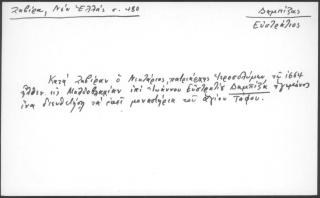 Ζαβίρα, Νέα Ἑλλάς σ. 480
Δαμπίζας
Εὐστράτιος
Κατά Ζαβίραν ὁ Νεκτάριος, πατριάρχης Ἱεροσολύμων τῷ 1664
ἦλθεν εἰς Μολδοβλαχίαν ἐπί Ἰωάννου Εὐστρατίου Δαμπίζα ἡγεμόνος
ἵνα διευθετήσῃ τά ἐκεῖ μοναστήρια τοῦ ἁγίου Τάφου.